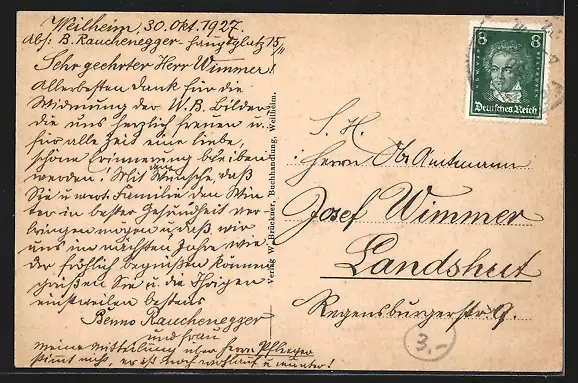 Weilheim, 30. Okt. 1927.
Abs: B. Rauchenegger - Hauptplatz 15/II
Sehr geehrter Herr Wimmer!
Allerbesten Dank für die
Widmung der W. B. Bilder
die uns herzlich freuen u.
für alle Zeit eine liebe,
schöne Erinnerung bleiben
werden! Mit Wunsche, daß
Sie u. wert. Familie den Win-
ter in bester Gesundheit ver-
bringen mögen u. daß wir
uns im nächsten Jahre wie-
der fröhlich begrüßen können
grüßen Sie u. die Ihrigen
einstweilen bestens
Benno Rauchenegger
und Frau
Meine Mitteilung über Herrn Pfleger
stimmt nicht, er ist noch wohlauf u. munter!
Verlag W. Brückner, Buchhandlung, Weilheim.
8 8
Deutsches Reich
S. H.
Herrn Ob. Amtmann
Josef Wimmer
Landshut
Regensburgerstr. 9.
3.-